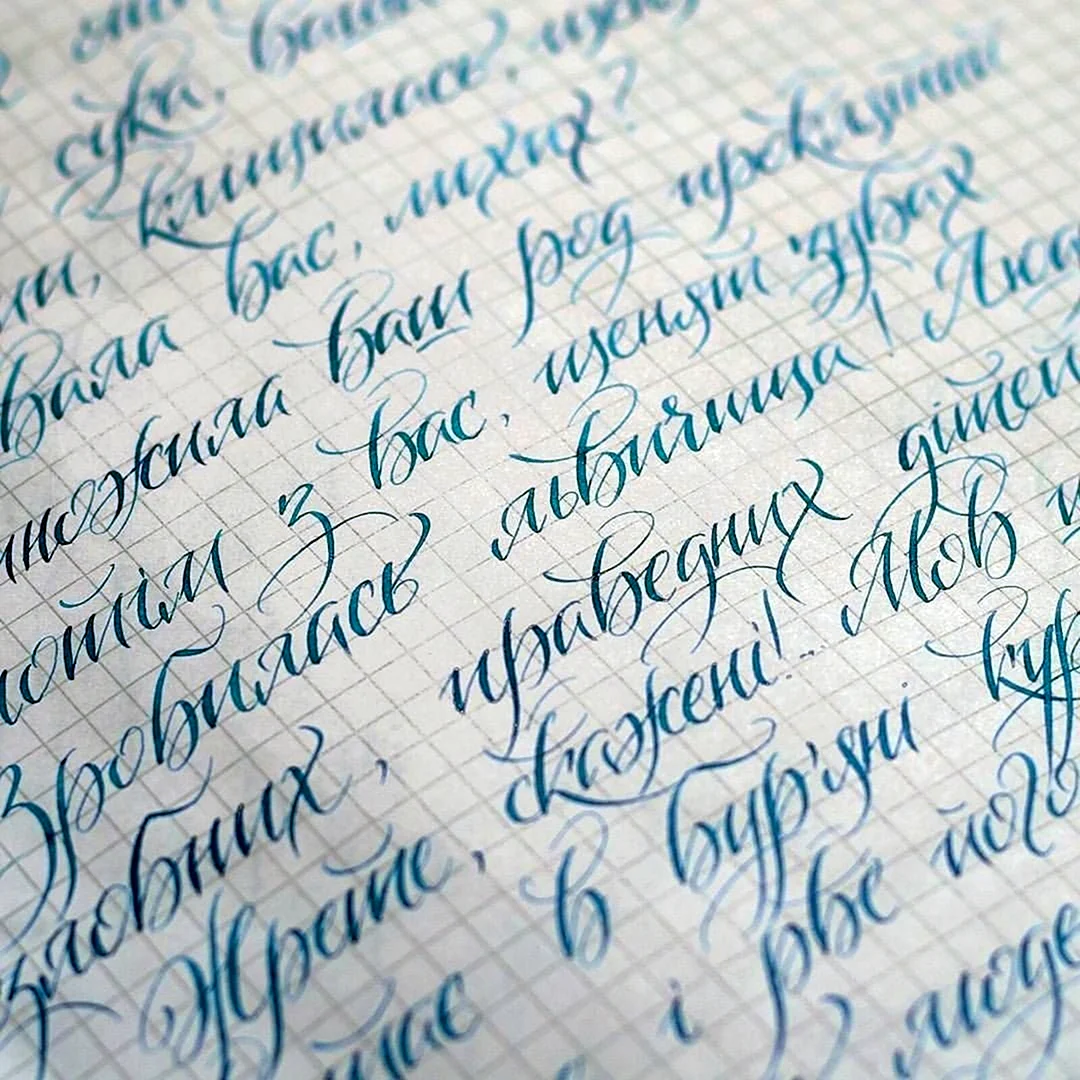 сука,
кліщилась,
вас, лихих?
ножила ваш род проклятиї
потім з вас, щенят зубах
Зробилась львичища! Люд
злобних, праведних дітей
Жрете, скажені!.. Мов
в бур'яні кур
і рве його
люде